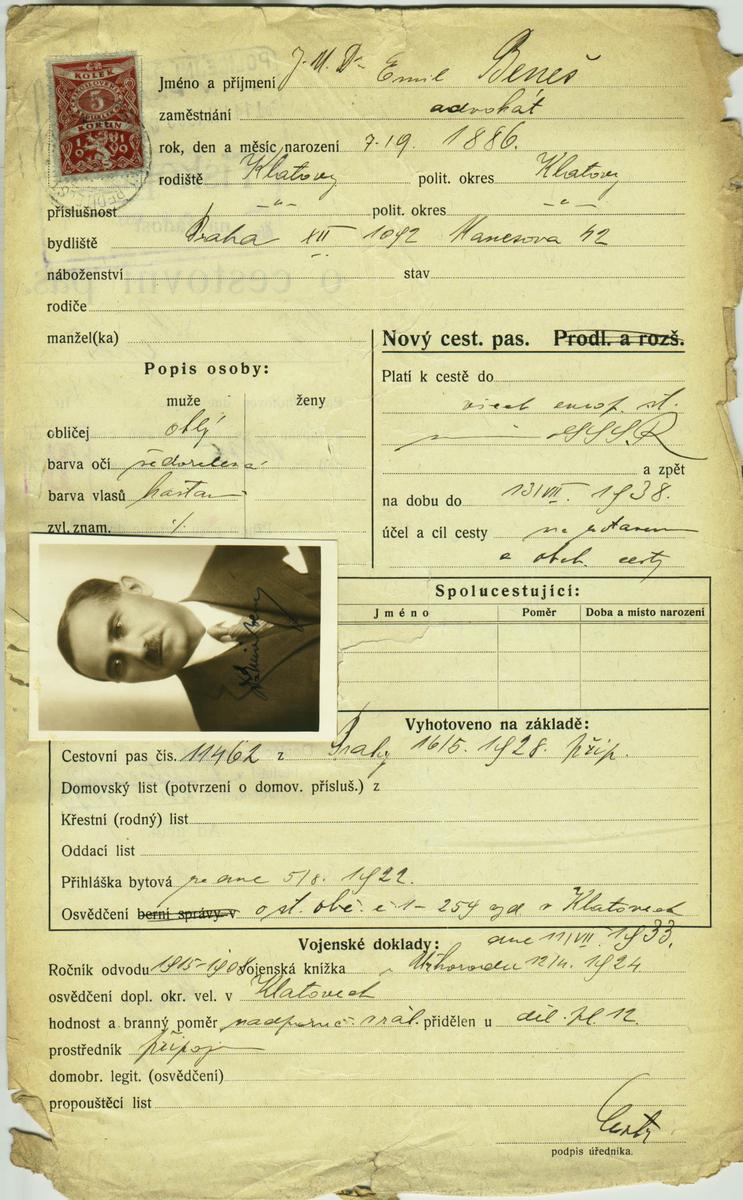 Č.R.
KOLEK
5
KORUN
1919
Jméno a příjmení J. U. Dr Emil Beneš
zaměstnání advokát
rok, den a měsíc narození 7. 1886.
rodiště Klatovy polit. okres Klatovy
příslušnost -„- polit. okres -„-
bydliště Praha XII 1092 Manesova 42
náboženství stav
rodiče
manžel(ka)
Nový cest. pas. Prodl. a rozš.
Popis osoby:
muže ženy
obličej oblý
barva očí šedozelená
barva vlasů kaštan
zvl. znam. ·/.
Platí k cestě do
všech europ. st.
SSSR
a zpět
na dobu do 13/VII. 1938.
účel a cíl cesty
a obch. cesty
Spolucestující:
Jméno Poměr Doba a místo narození
Vyhotoveno na základě:
Cestovní pas čís. 11462 z Prahy 16/5. 1928. přip.
Domovský list (potvrzení o domov. přísluš.) z
Křestní (rodný) list
Oddací list
Přihláška bytová ze dne 5/8. 1922.
Osvědčení berní správy v o st. obč. č 1-254 v Klatovech
dne 11/VII. 1933.
Vojenské doklady:
Ročník odvodu 1915-1908 vojenská knížka Užhorodu 12/4. 1924
osvědčení dopl. okr. vel. v Klatovech
hodnost a branný poměr přidělen u děl. pl. 12.
prostředník
domobr. legit. (osvědčení)
propouštěcí list
podpis úředníka.